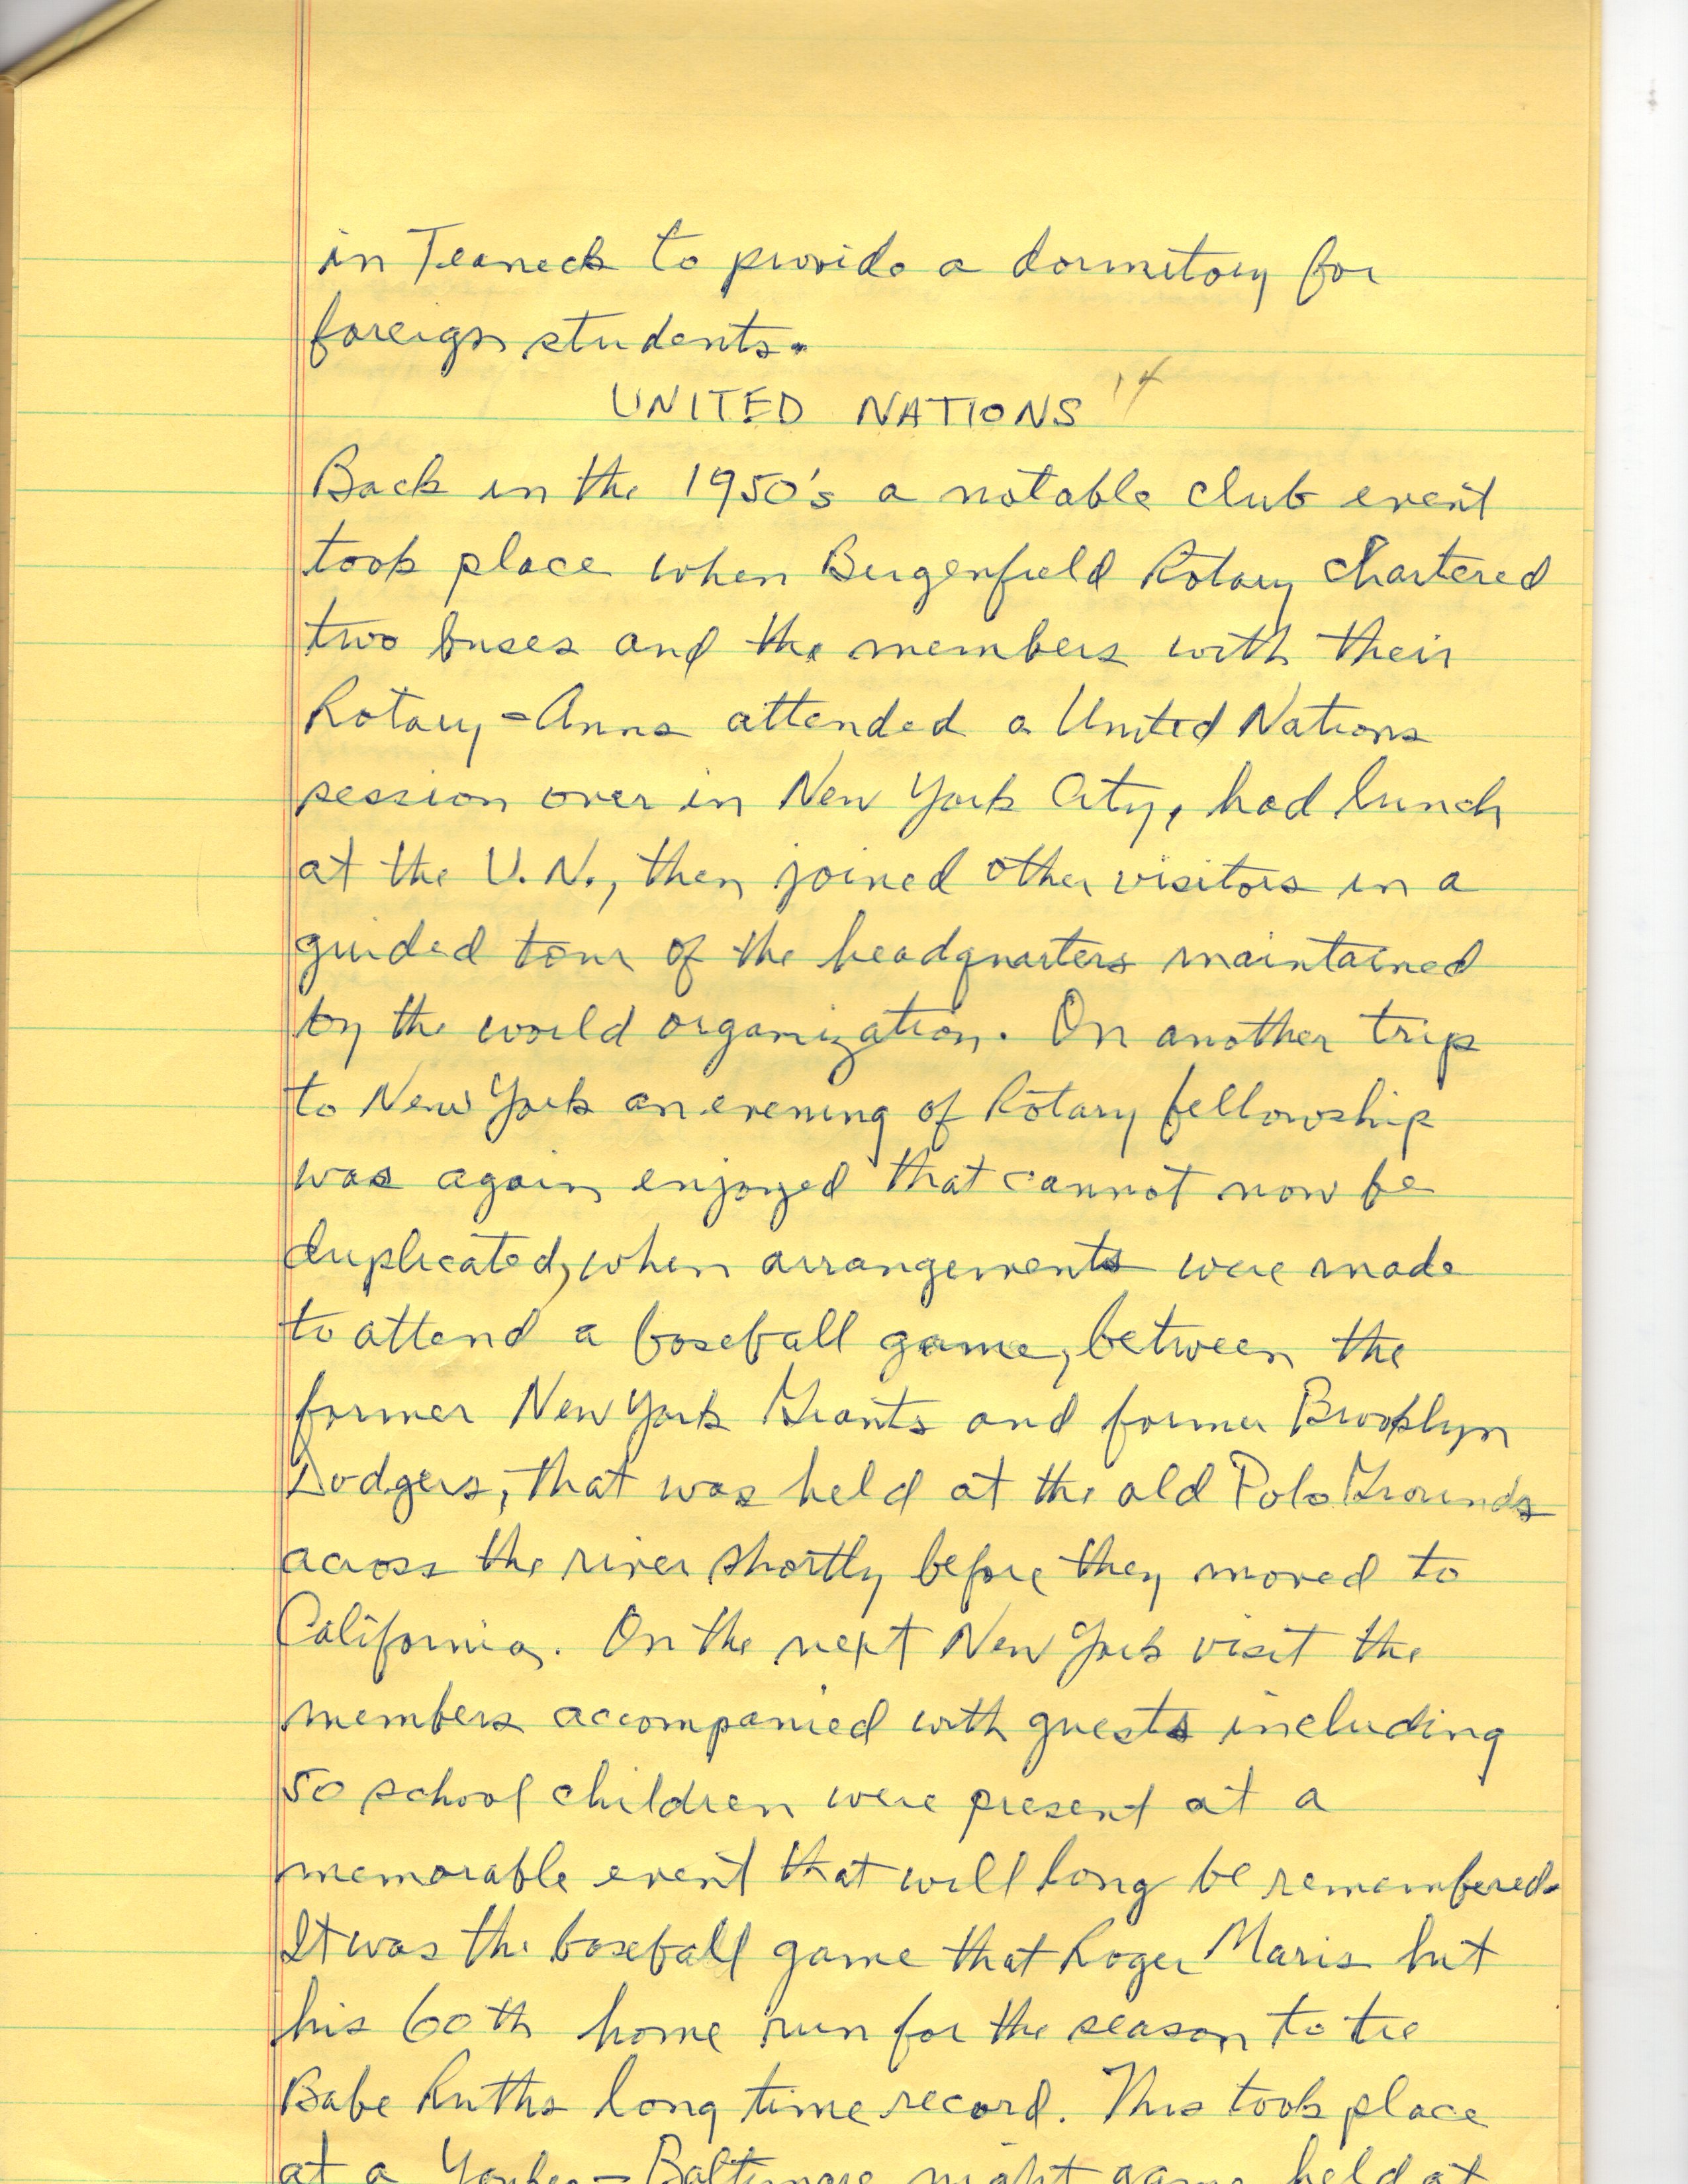 in Teaneck to provide a dormitory for
foreign students.
14
UNITED NATIONS
Back in the 1950's a notable club event
took place when Bergenfield Rotary chartered
two buses and the members with their
Rotary-Anns attended a United Nations
session over in New York City, had lunch
at the U.N., then joined other visitors in a
guided tour of the headquarters maintained
by the world organization. On another trip
to New York an evening of Rotary fellowship
was again enjoyed that cannot now be
duplicated, when arrangements were made
to attend a baseball game, between the
former New York Giants and former Brooklyn
Dodgers, that was held at the old Polo Grounds
across the river shortly before they moved to
California. On the next New York visit the
members accompanied with guests including
50 school children were present at a
memorable event that will long be remembered.
It was the baseball game that Roger Maris hit
his 60th home run for the season to tie
Babe Ruths long time record. This took place
at a Yankee-Baltimore night game held at